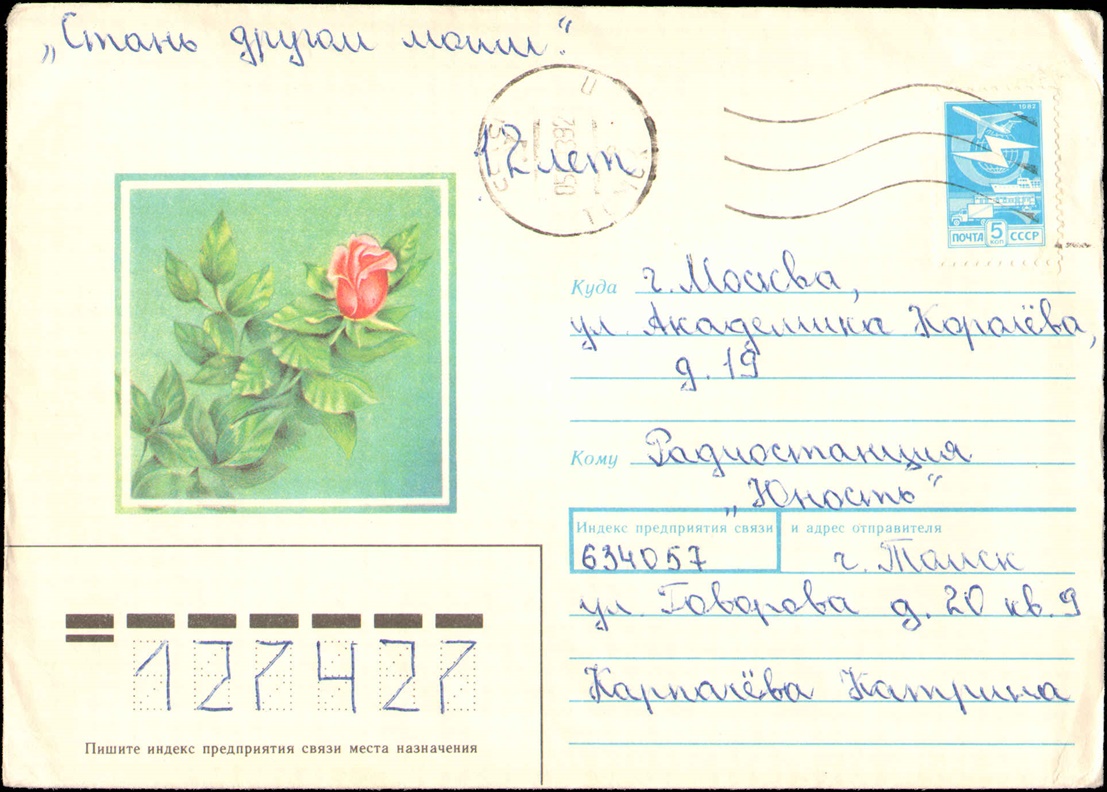 „Стань другом моим“.
12 лет
1982
ПОЧТА 5 КОП СССР
Куда г. Москва,
ул. Академика Королёва,
д. 19
Кому Радиостанция
„Юность“
Индекс предприятия связи и адрес отправителя
634057 г. Томск
ул. Говорова д. 20 кв. 9
Карпачёва Катрина
127427
Пишите индекс предприятия связи места назначения